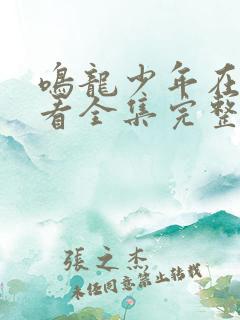 鳴龍少年在
看全集完整
張之杰
未經同意禁止轉載